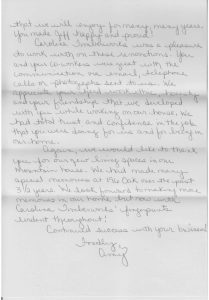 that we will enjoy for many, many years.
You made Jeff happy and proud!
Caroline Timberworks was a pleasure
to work with on these renovations. You
and your co-workers were great with the
communication via email, telephone
calls or photographs sent to us. We
appreciate your hard work, honesty
and your friendship that we developed
with you while working on our house. We
had total trust and confidence in the job
that you were doing for us and for being in
our home.
Again, we would like to thank
you for our new living spaces in our
Mountain house. We had made many
special memories at Mc Oak over the past
3 1/2 years. We look forward to making more
memories in our home, but now with
Caroline Timberworks' fingerprints
evident throughout!
Continued success with your business!
Fondly,
Amy